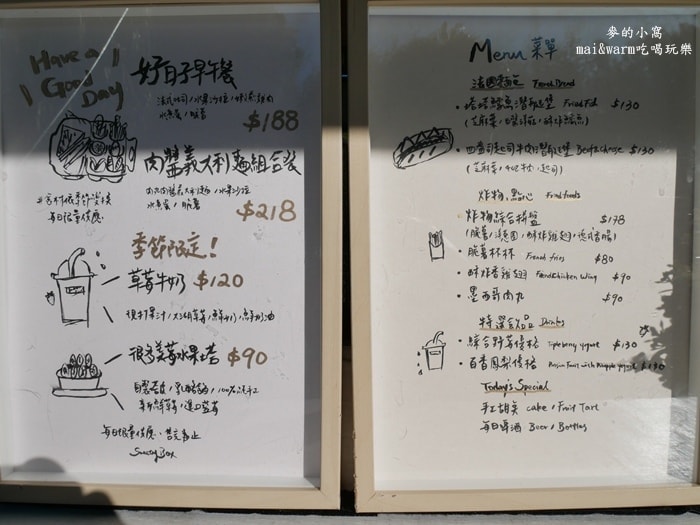 麥的小窩
mai&warm吃喝玩樂
Have a
Good
Day
好日子早午餐
水煮蛋 / 脆薯
$188
肉醬義大利麵組合餐
水煮蛋 / 脆薯
$218
每日限量供應
季節限定!
草莓牛奶 $120
現打果汁 / 大湖草莓 / 鮮奶 / 鮮奶油
很多莓水果塔 $90
新鮮草莓 / 進口藍莓
每日限量供應、售完為止
Menu 菜單
法國麵包 French Bread
Fried Fish $130
Beef & Cheese $130
炸物.點心 Fried foods
炸物綜合拼盤 $178
脆薯杯杯 French fries $80
酥炸香雞翅 Fried Chicken Wing $90
墨西哥肉丸 $90
特選飲品 Drinks
綜合野莓優格 Triple berry yogurt $130
百香鳳梨優格 Passion Fruit with Pineapple yogurt $130
Today's Special
手工甜點 Cake / Fruit Tart
每日啤酒 Beer / Bottles